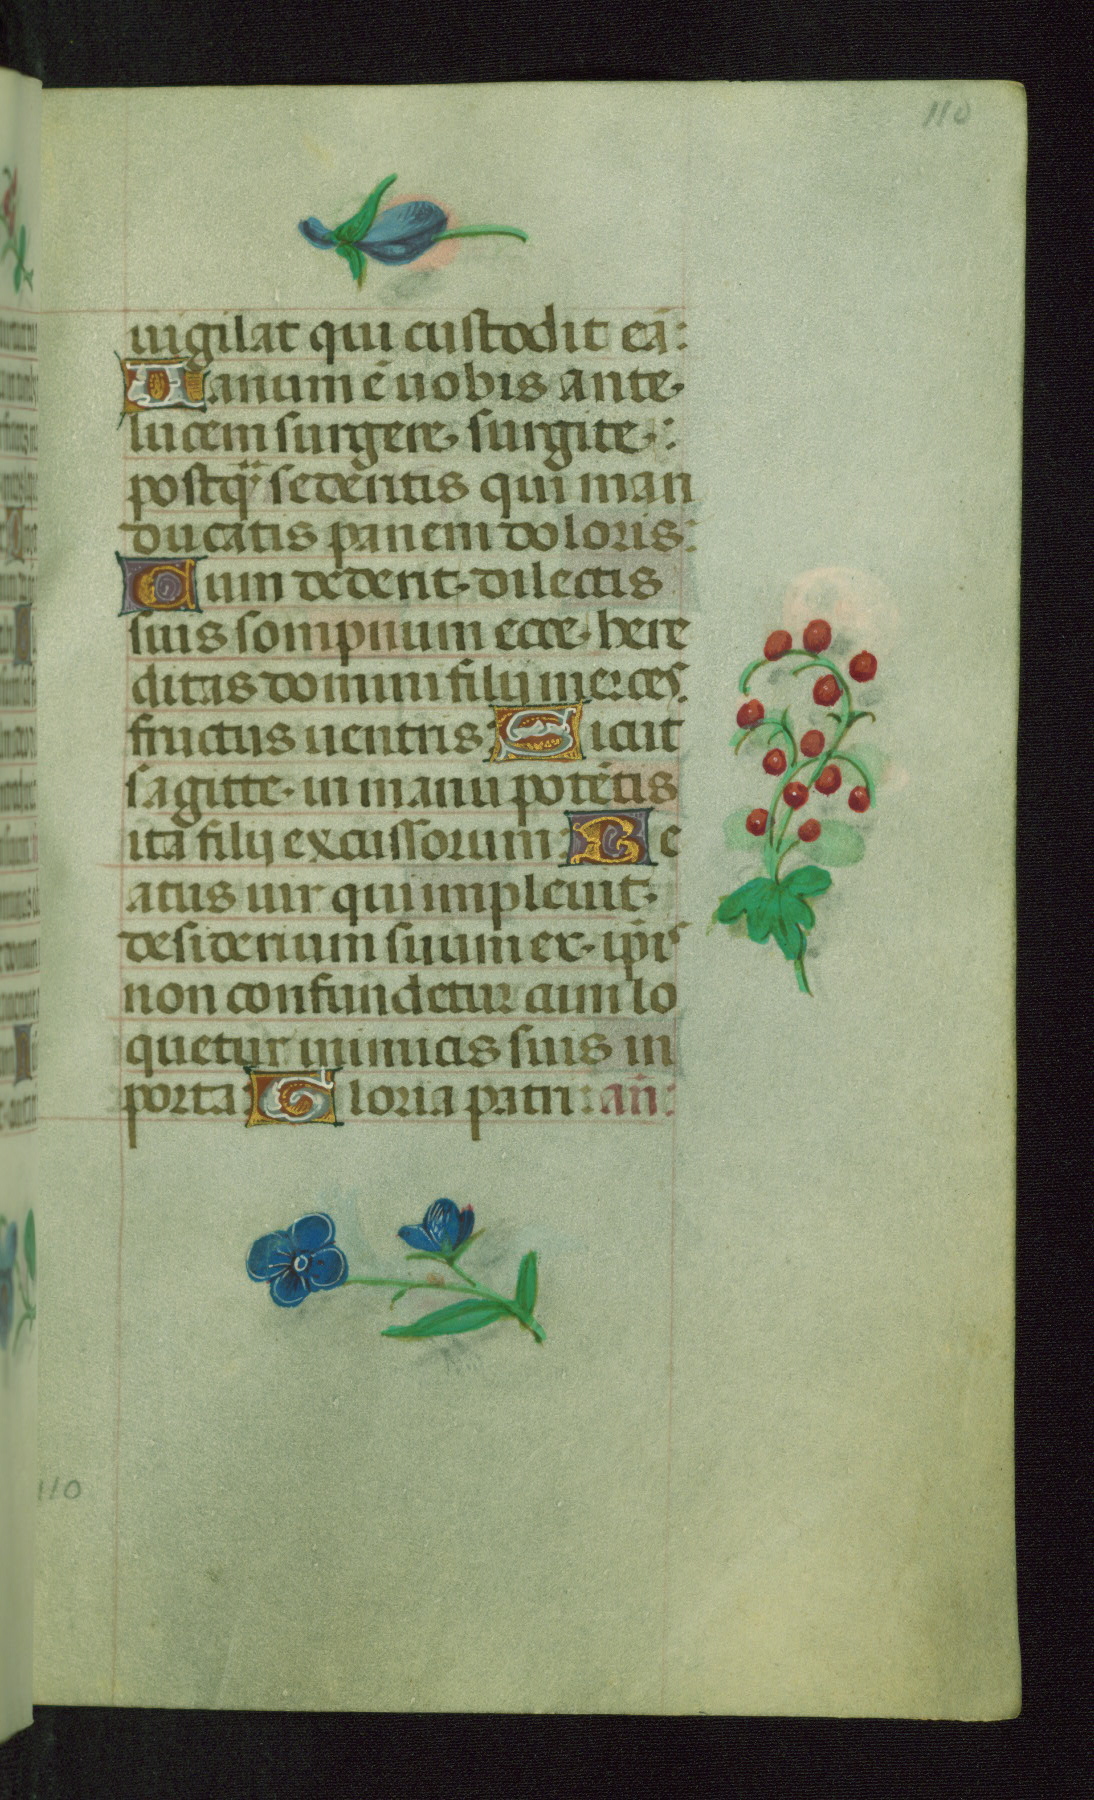 110
uigilat qui custodit eā:
Uanum ē uobis ante
lucem surgere surgite:
postq̄ sedentis qui man
ducatis panem doloris:
Cum dederit dilectis
suis sompnum ecce here
ditas domini filij merces
fructus uentris: Sicut
sagitte in manu potētis
ita filij excussorum: Be
atus uir qui impleuit
desiderium suum ex ip̄is
non confundetur cum lo
quetur inimicis suis in
porta: Gloria patri: an̄:
110